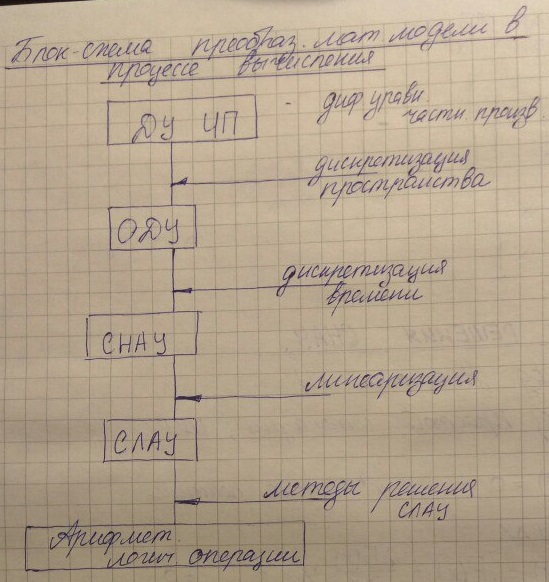 Блок-схема преобраз. мат модели в
процессе вычисления
ДУ ЧП
диф. уравн.
части. произв
дискретизация
пространства
ОДУ
дискретизация
времени
СНАУ
линеаризация
СЛАУ
методы решения
СЛАУ
Арифмет.
логич операции